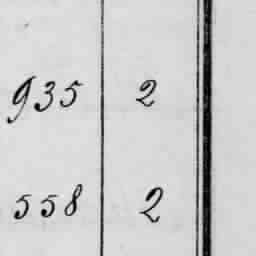 935 2
558 2